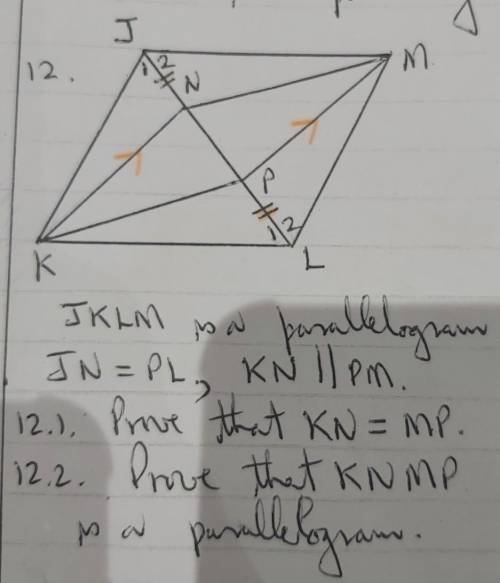 J
M
12.
1 2
N
P
1 2
K
L
JKLM is a parallelogram
JN = PL, KN || PM.
12.1. Prove that KN = MP.
12.2. Prove that KNMP
is a parallelogram.